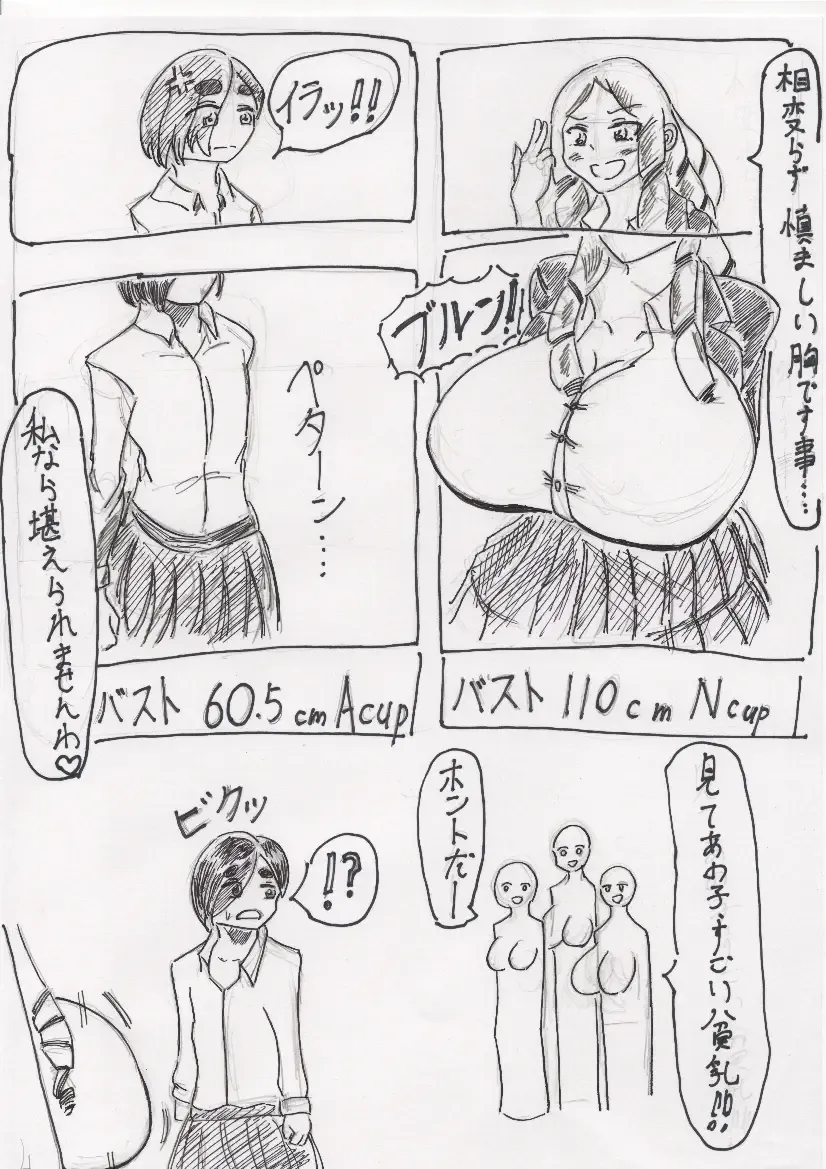 相変らず 慎ましい胸です事…
イラッ!!
ブルン!!
ペターン…
私なら堪えられませんわ♡
バスト 110cm Ncup
バスト 60.5cm Acup
見てあの子、すごい貧乳!!
ホントだー
ビクッ
!?